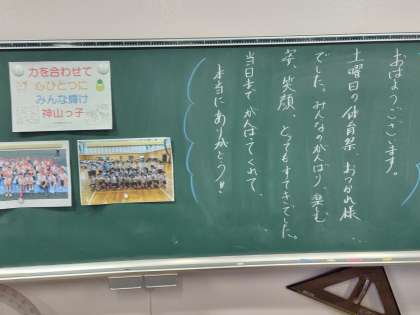 おはようございます。
土曜日の体育祭、おつかれ様
でした。みんなのがんばり、楽む
姿、笑顔、とってもすてきでした。
当日まで がんばてくれて、
本当に ありがとう!!
力を合わせて
心ひとつに
みんな輝け
神山っ子